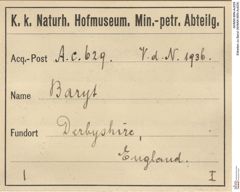 K. k. Naturh. Hofmuseum. Min.-petr. Abteilg.
Acq.-Post A.c.629. V.d.N. 1936.
Name Baryt
Fundort Derbyshire,
England.
I I